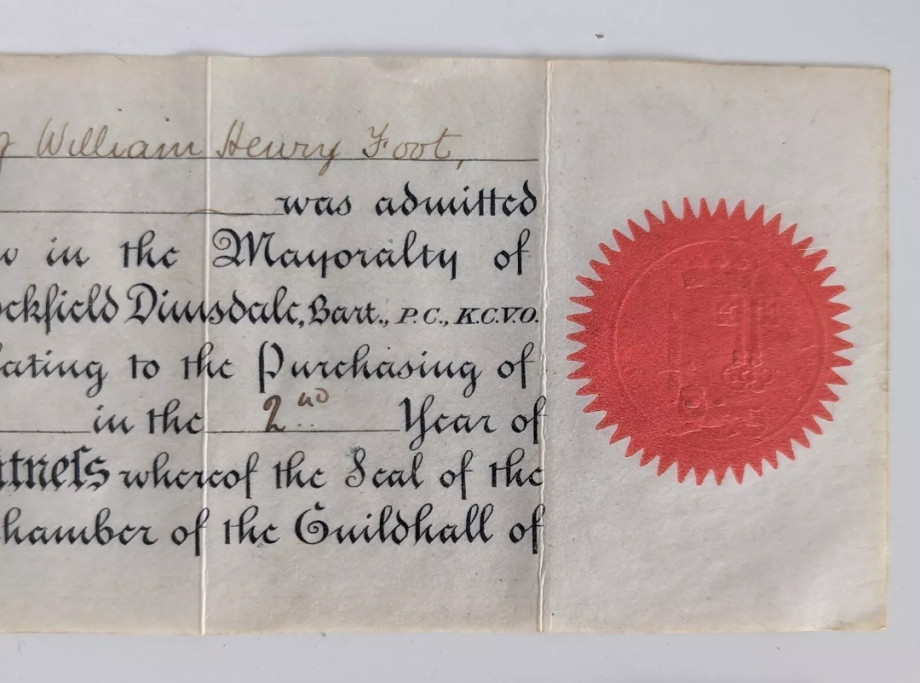 William Henry Foot,
was admitted
in the Mayoralty of
ockfield Dimsdale, Bart., P.C., K.C.V.O.
ating to the Purchasing of
in the 2nd Year of
tness whereof the Seal of the
hamber of the Guildhall of